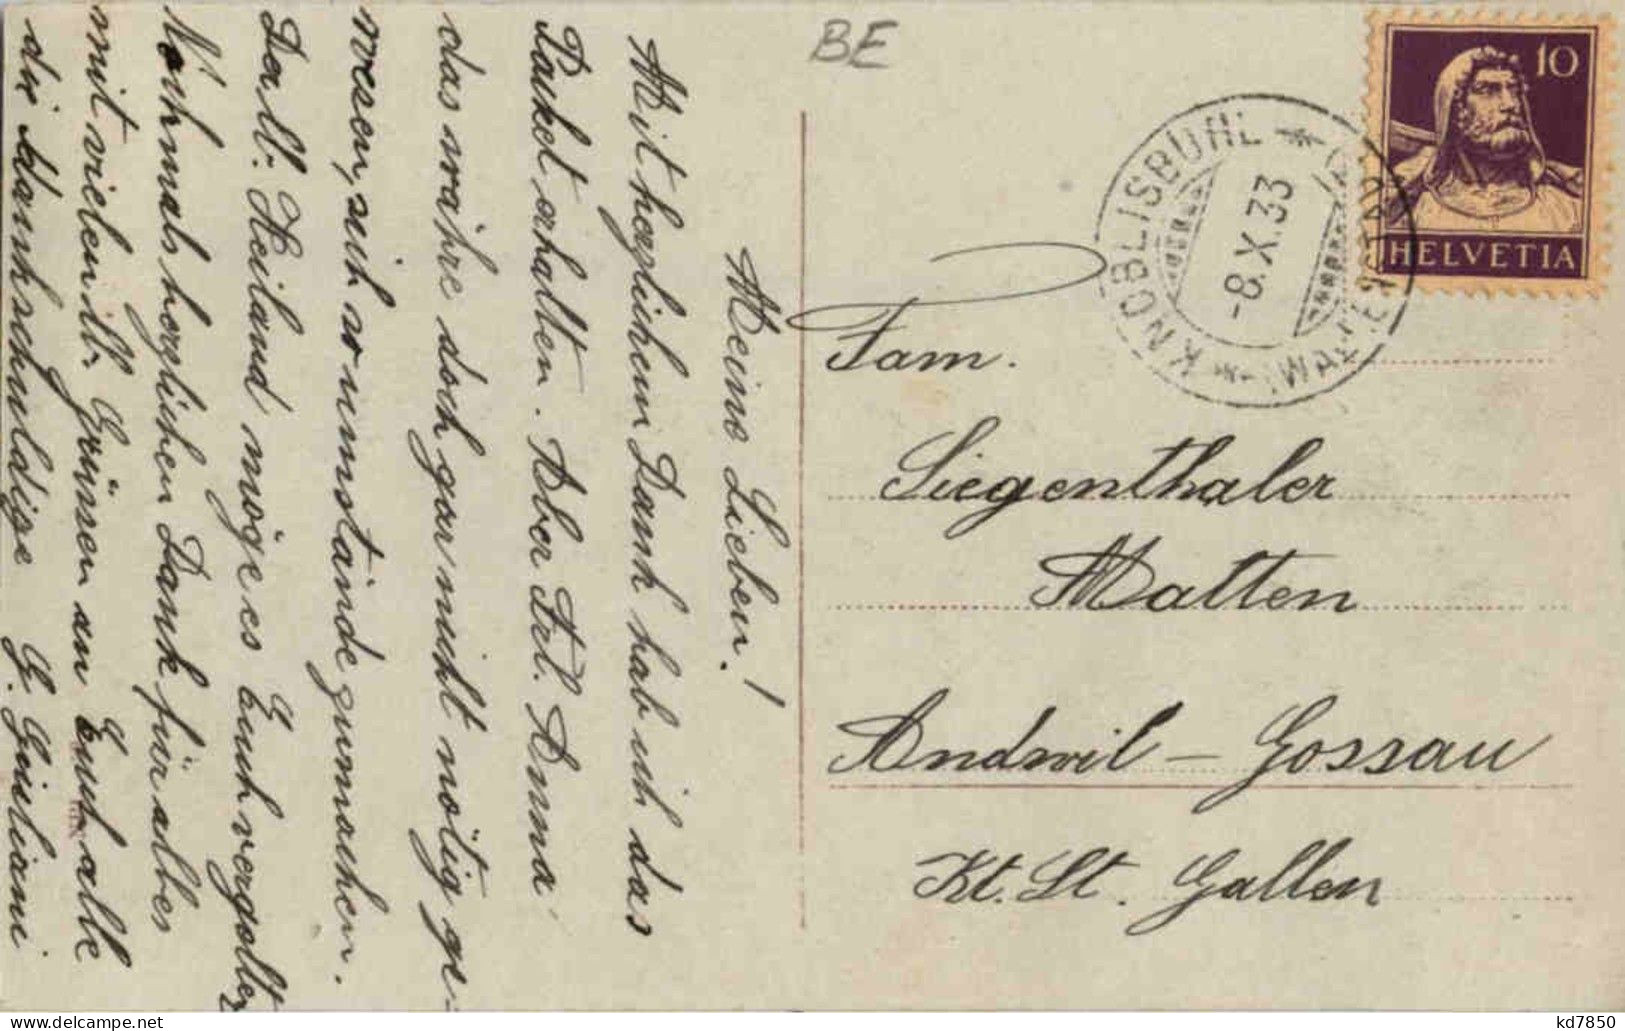 BE
10
HELVETIA
KNOBLISBÜHL
-8.X.33
Meine Lieben!
Mit herzlichem Dank hab ich das
Packet erhalten. Aber Frl. Anna
das währe doch gar nicht nötig ge-
wesen, sich so umstände zu machen.
Der lb. Heiland möge es Euch vergelten
Nochmals herzlichen Dank für alles
mit vielen lb. Grüssen an Euch alle
die dankschuldige G. Giuliani
Fam.
Siegenthaler
Matten
Andwil - Gossau
Kt. St. Gallen
kd7850